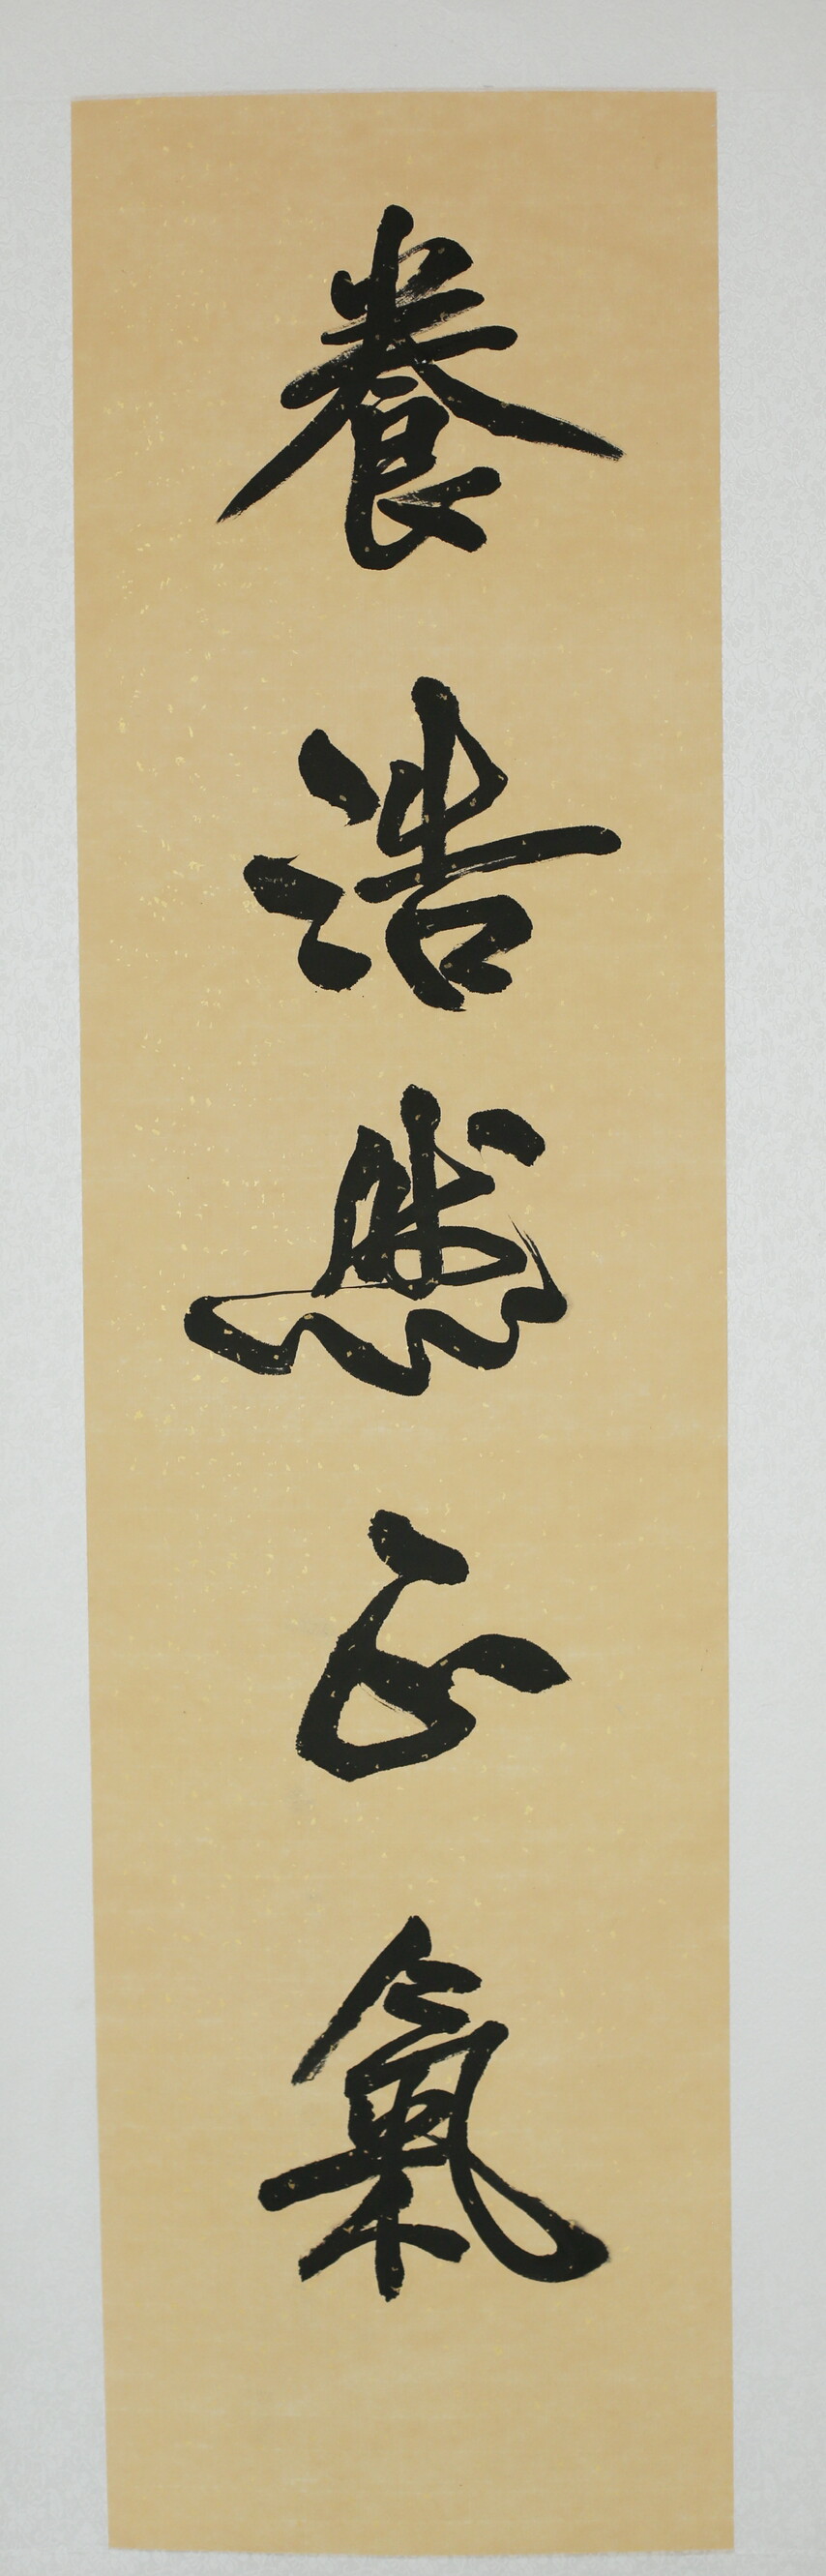 養浩然正氣